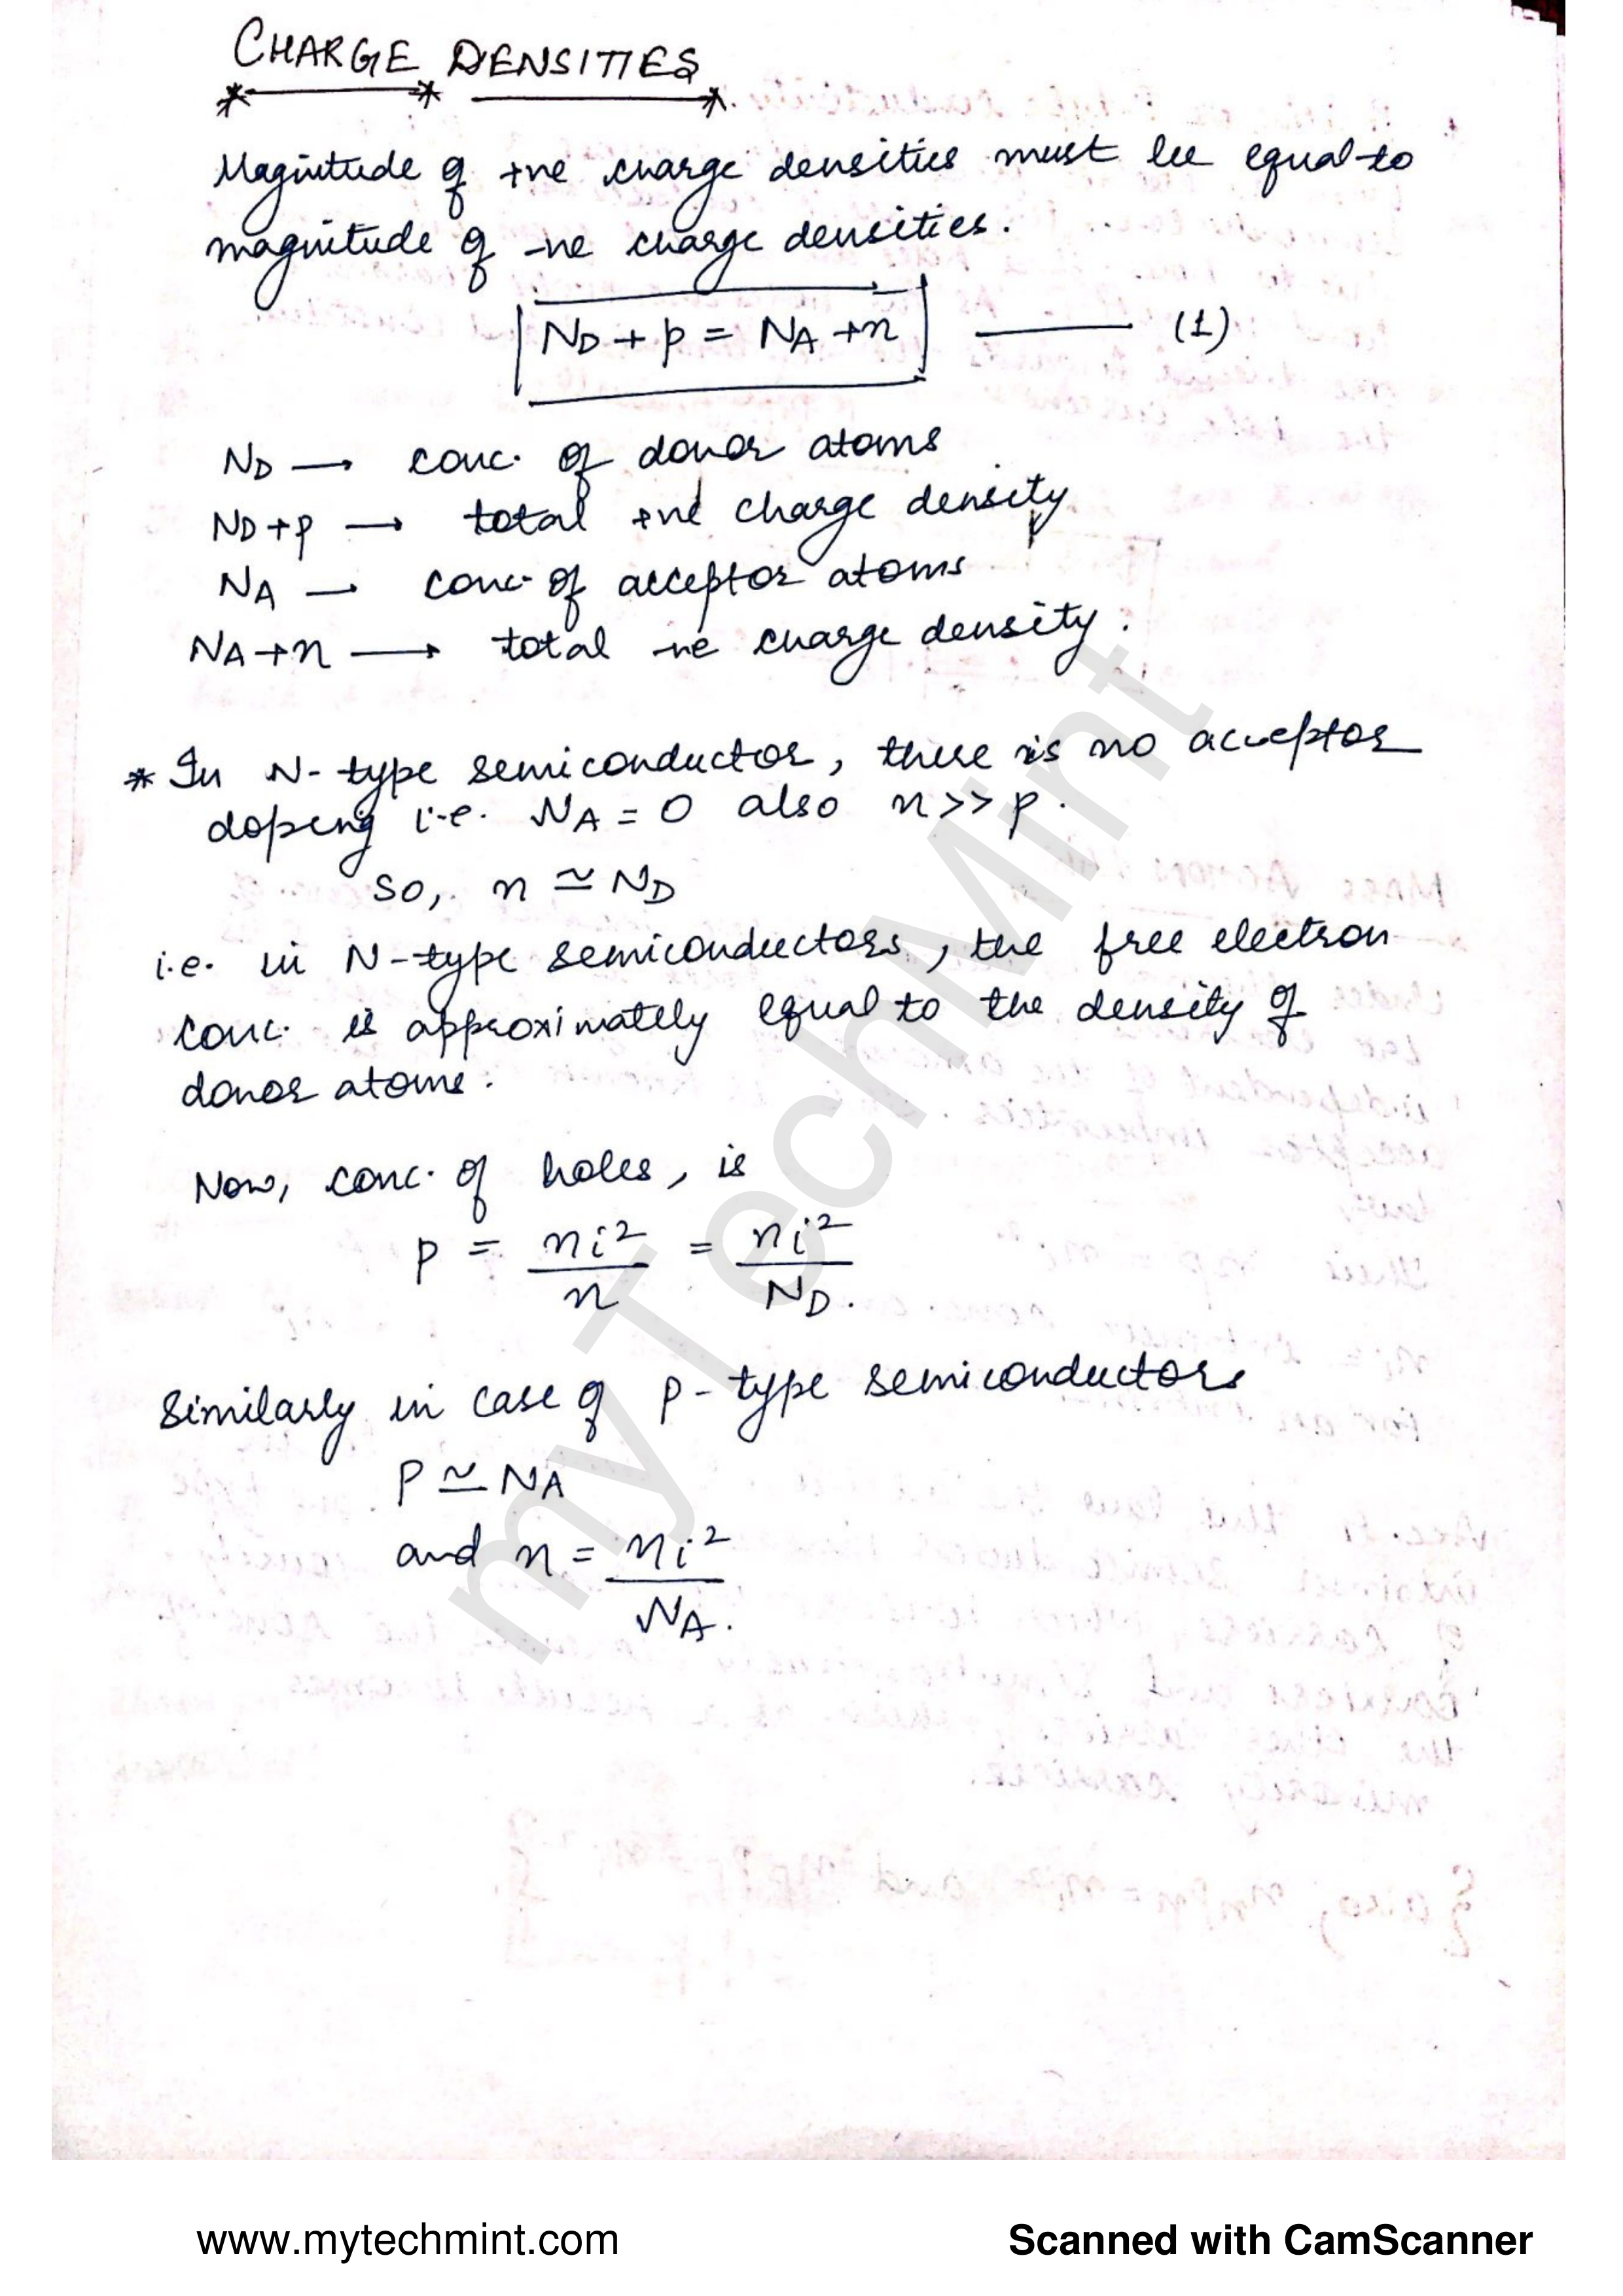 CHARGE DENSITIES
Magnitude of +ve charge densities must be equal to
magnitude of -ve charge densities.
N_D + p = N_A + n ——— (1)
N_D → conc. of donor atoms
N_D + p → total +ve charge density
N_A → conc. of acceptor atoms
N_A + n → total -ve charge density.
* In N-type semiconductor, there is no acceptor
doping i.e. N_A = 0 also n >> p.
so, n ≃ N_D
i.e. in N-type semiconductors, the free electron
conc. is approximately equal to the density of
donor atoms.
Now, conc. of holes, is
p = ni²/n = ni²/N_D.
Similarly in case of p-type semiconductors
P ≃ N_A
and n = ni²/N_A.
myTechMint
www.mytechmint.com Scanned with CamScanner